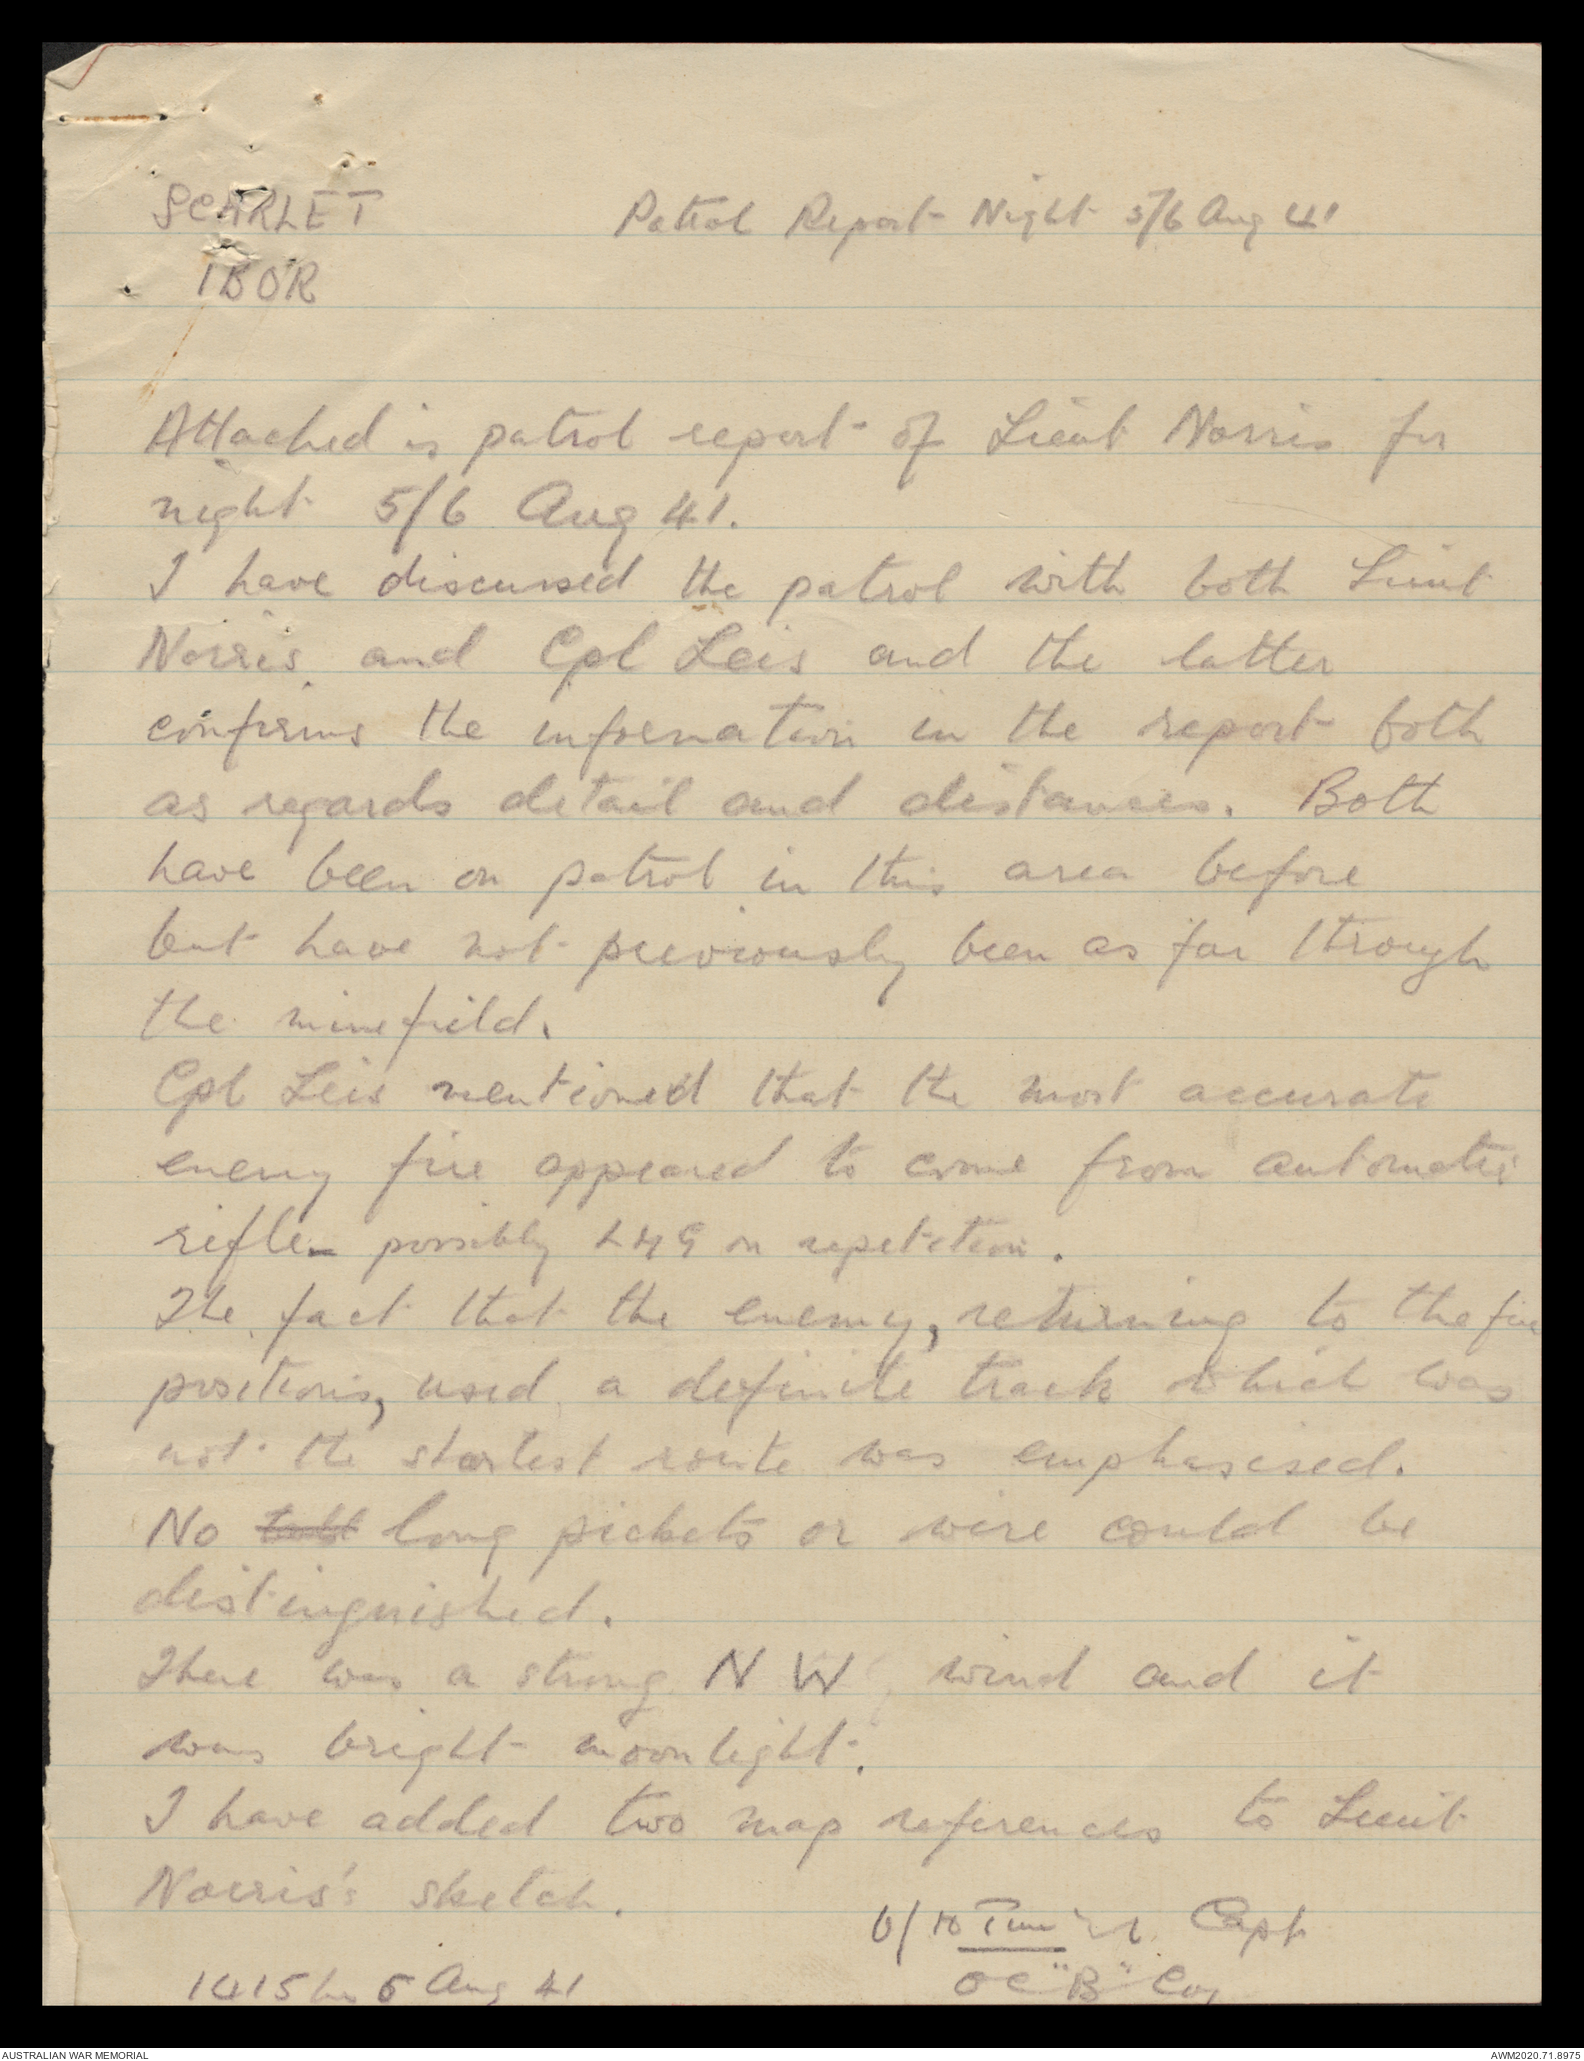 SCARLET Patrol Report Night 5/6 Aug 41
IBOR
Attached is patrol report of Lieut Norris for
night 5/6 Aug 41.
I have discussed the patrol with both Lieut
Norris and Cpl Leis and the latter
confirms the information in the report both
as regards detail and distances. Both
have been on patrol in this area before
but have not previously been as far through
the minefield.
Cpl Leis mentioned that the most accurate
enemy fire appeared to come from automatic
rifle - possibly LMG on repetition.
The fact that the enemy, returning to the fire
positions, used a definite track which was
not the shortest route was emphasised.
No long pickets or wire could be
distinguished.
There was a strong N W wind and it
was bright moonlight.
I have added two map references to Lieut
Norris's sketch.
Capt
1415 hrs 6 Aug 41 OC "B" Coy
AUSTRALIAN WAR MEMORIAL AWM2020.71.8975